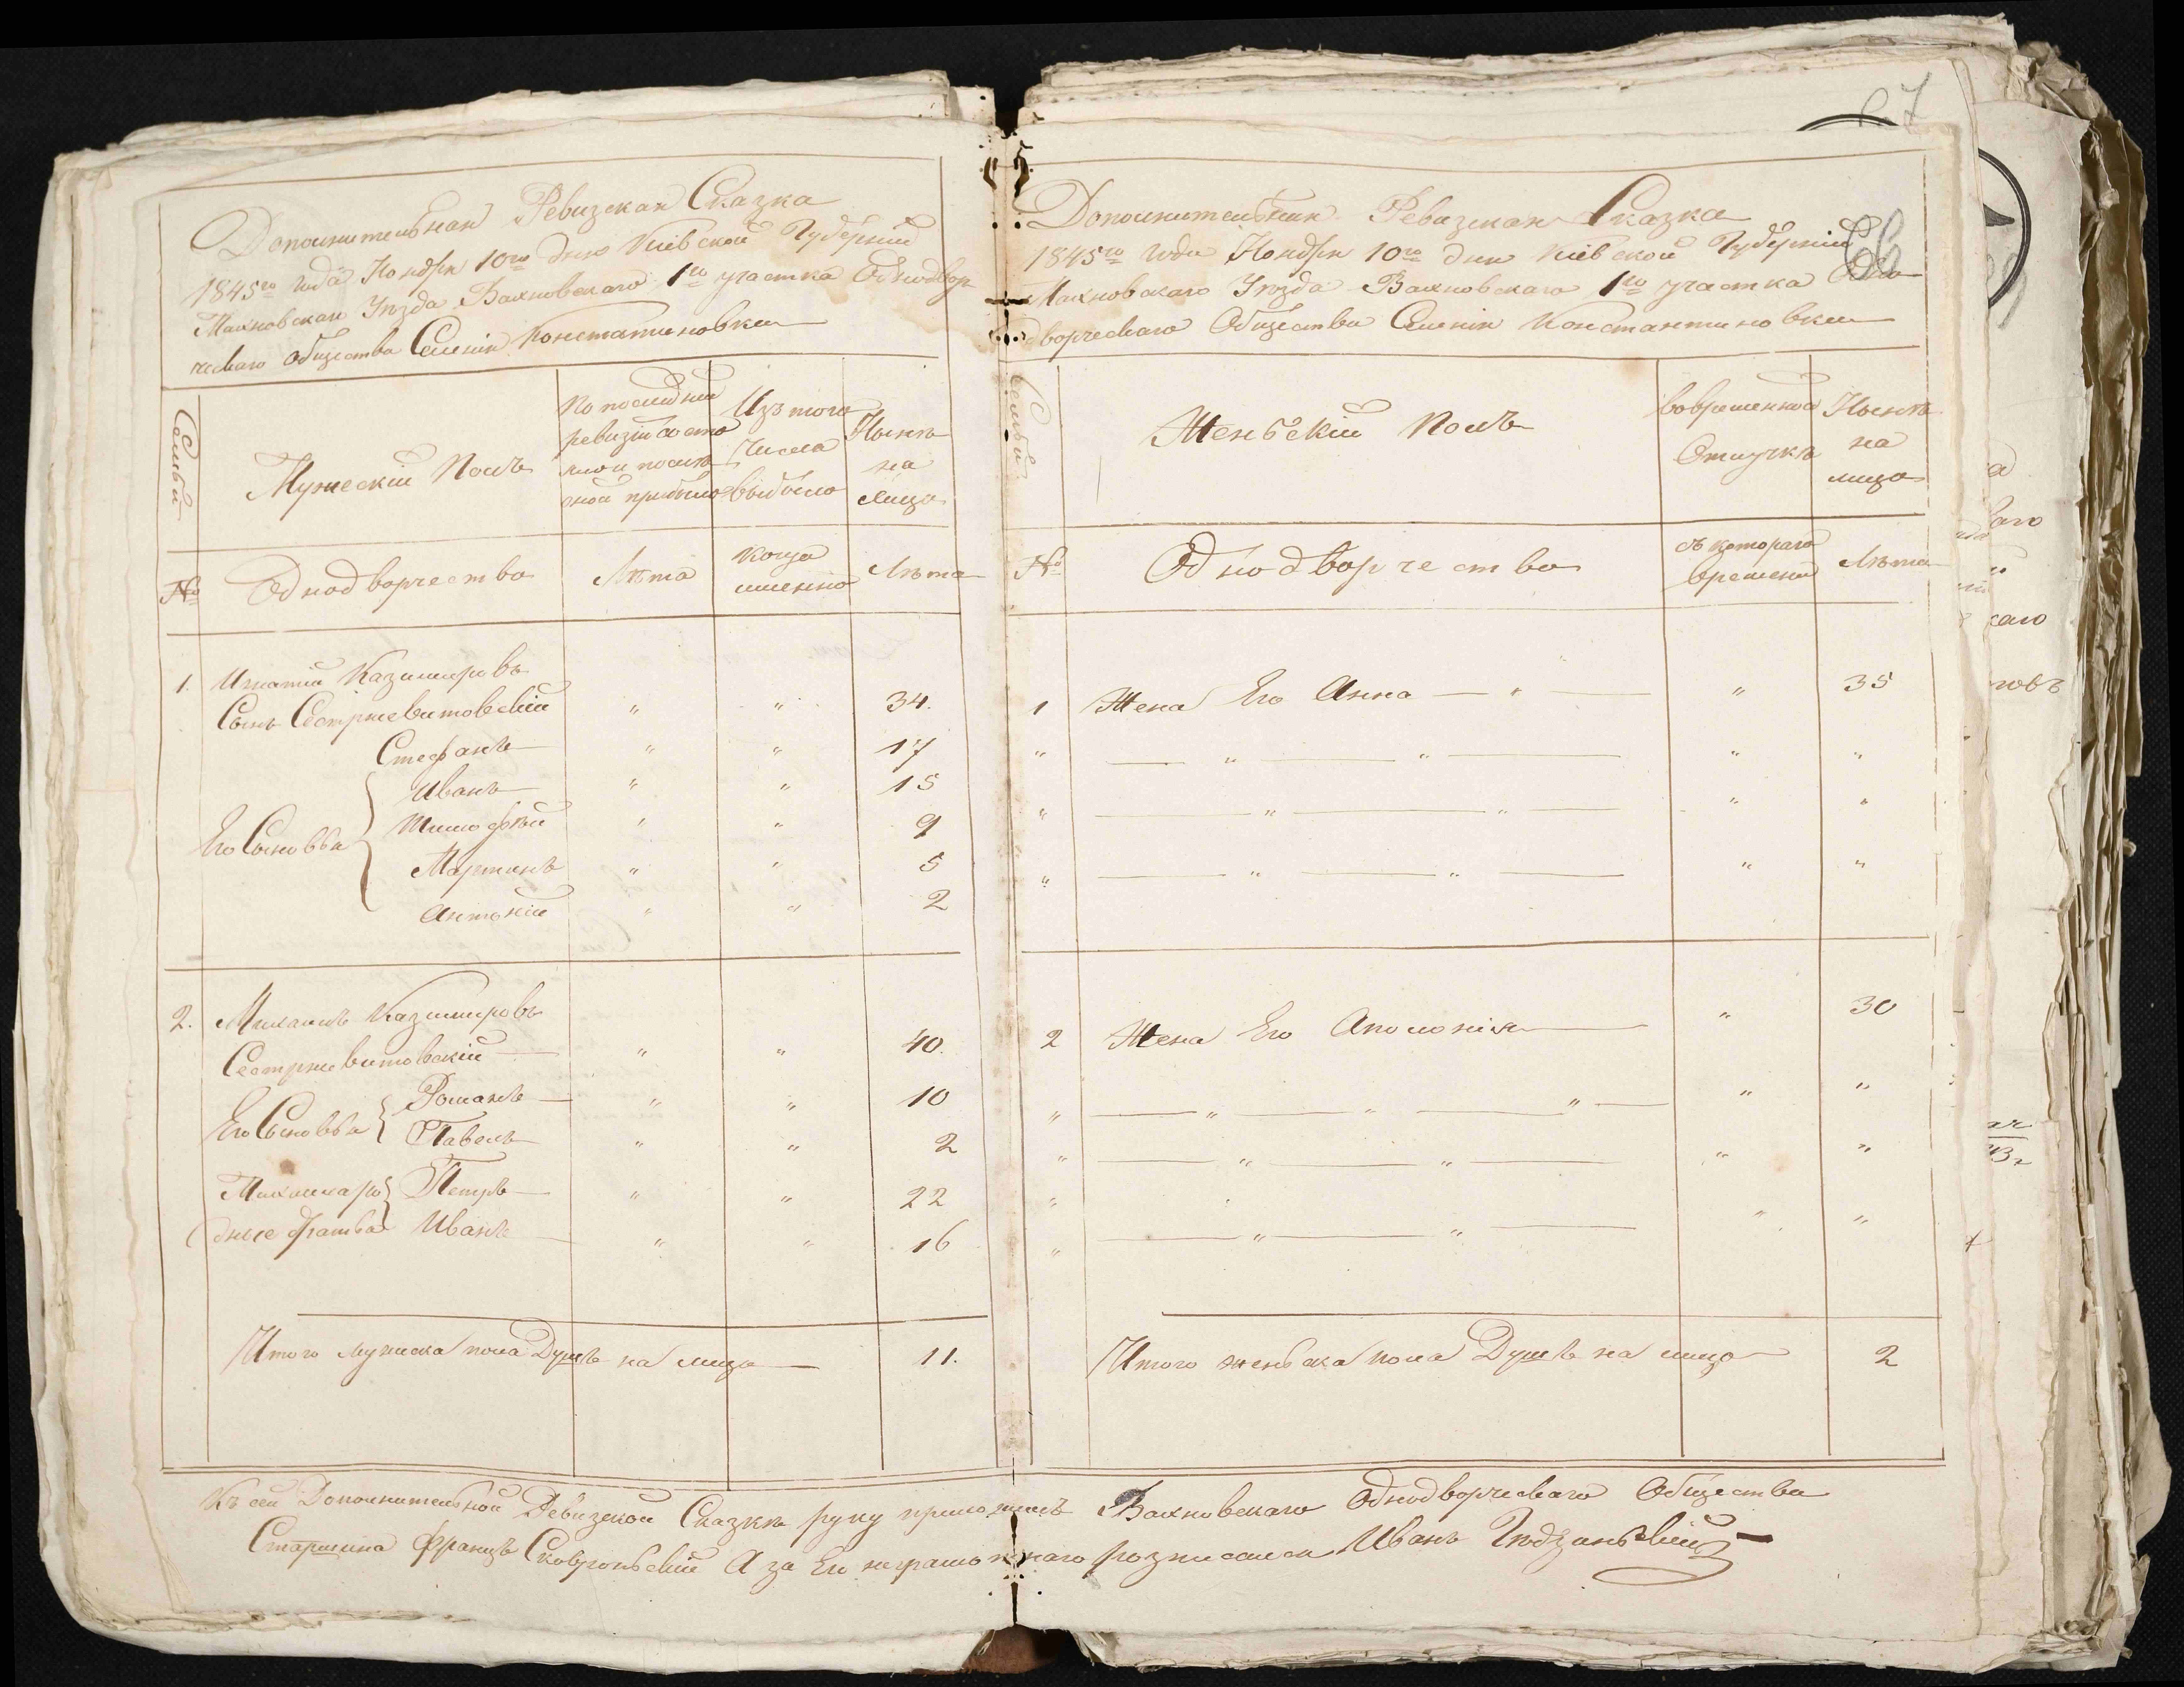 Дополнительная Ревизская Сказка
1845го года Ноября 10го дня Киевской Губернии
Махновскаго Уезда Вахновскаго 1го участка Однодвор
ческаго общества Селенія Константиновки
Семьи
Мужескій Полъ
По последней
ревизіи состо
яло и после
оной прибыло
Изъ того
Числа
выбыло
Ныне
на
лицо
№
Однодворчество
Лѣта
когда
именно
Лѣта
1. Игнатій Казимировъ
Сынъ Сестржевитовскій " " 34.
Стефанъ " " 17
Его Сыновья
Иванъ " " 15
Тимофей " " 9
Мартинъ " " 5
Антоній " " 2
2. Михаилъ Казимировъ
Сестржевитовскій " " 40.
Его Сыновья
Романъ " " 10
Павелъ " " 2
Михаила ро
дные братья
Петръ " " 22
Иванъ " " 16
Итого мужеска пола Душъ на лицо — 11.
67
66
Дополнительная Ревизская Сказка
1845го года Ноября 10го дня Киевской Губерніи
Махновскаго Уезда Вахновскаго 1го участка Одно
дворческаго Общества Селенія Константиновки
Семьи
Женьскій Полъ
Вовременной
Отлучке
Ныне
на
лицо
№
Однодворчество
съ котораго
времени
Лѣта
1 Жена Его Анна — " — " 35
" — " — " — " "
" — " — " — " "
" — " — " — " "
2 Жена Его Аполонія — " 30
" — " — " — " — " "
" — " — " — " "
"
" — " — " — " "
Итого женьска пола Душъ на лицо 2
Къ сей Дополнительной Ревизской Сказке руку приложилъ Вахновскаго Однодворческаго Общества
Старшина Францъ Сковроньскій А за Его неграмотнаго розписался Иванъ